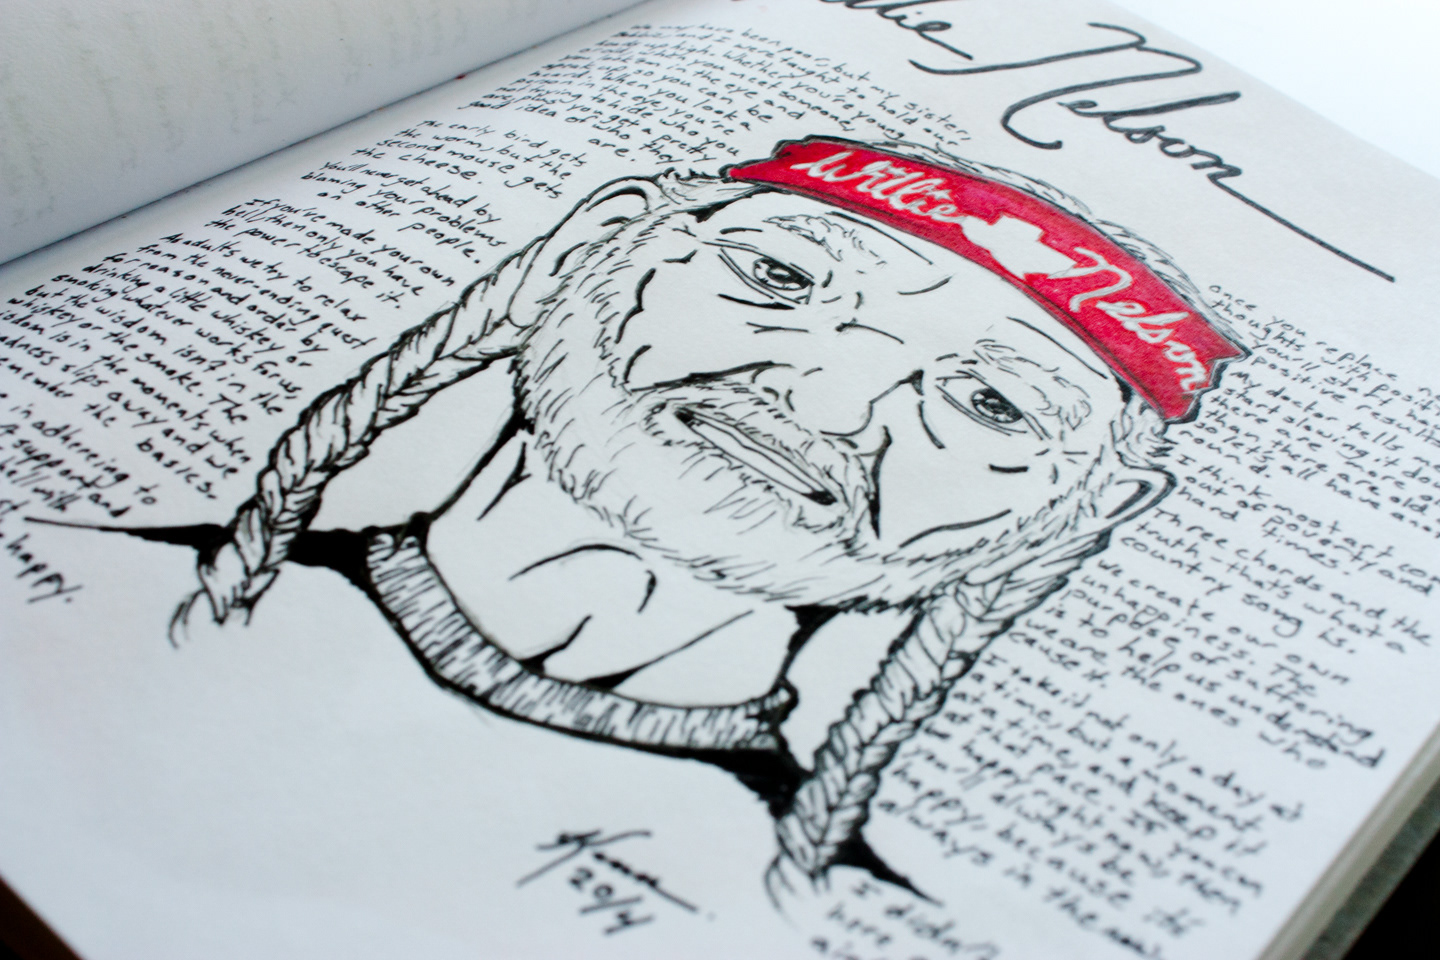 Nelson
We may have been poor, but
and I were taught to hold our
heads up high. Whether you're young
or old, when you meet someone,
look 'em in the eye and
When you look a
person in the eye, you're
not trying to hide who you
are, plus you get a pretty
good idea of who they
are.
The early bird gets
the worm, but the
second mouse gets
the cheese.
You'll never get ahead by
blaming your problems
on other people.
If you've made your own
hell, then only you have
the power to escape it.
As adults we try to relax
from the never-ending quest
for reason and order by
drinking a little whiskey or
smoking whatever works for us,
but the wisdom isn't in the
whiskey or the smoke. The
wisdom is in the moments when
madness slips away and we
remember the basics.
in adhering to
happy.
Willie Nelson
once you replace
thoughts with positive
you'll start having
positive results.
My doctor tells me
start slowing it down
there are more old
than there are old
I think most
out of poverty and
hard times.
Three chords and the
truth - that's what a
country song is.
We create our own
unhappiness. The
purpose of suffering
is to help us understand
we are the ones who
cause it.
I take it not only a day at
a time, but a moment
at a time, and keep it
at that pace. If you can
be happy right now, then
you'll always be
happy, because it's
always in the now.
I didn't
here
2014